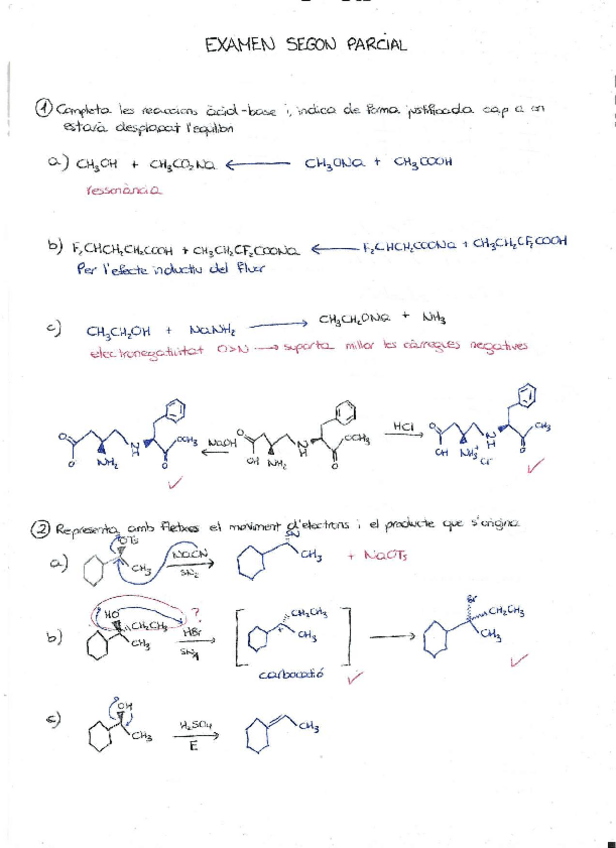 EXAMEN SEGON PARCIAL
① Completa les reaccions àcid-base i, indica de forma justificada cap a on
estarà desplaçat l'equilibri
a) CH₃OH + CH₃CO₂Na ← CH₃ONa + CH₃COOH
ressonància
b) F₂CHCH₂CH₂COOH + CH₃CH₂CF₂COONa ← F₂CHCH₂COONa + CH₃CH₂CF₂COOH
Per l'efecte inductiu del fluor
c) CH₃CH₂OH + NaNH₂ → CH₃CH₂ONa + NH₃
electronegativitat O>N → suporta millor les càrregues negatives
O O NH₂ N H OCH₃ O NaOH ← O OH NH₂ N H OCH₃ O HCl → O OH NH₃⁺ Cl⁻ N H O CH₃
② Representa amb fletxes el moviment d'electrons i el producte que s'origina
a) OTs CH₃ NaCN SN₂ → CN CH₃ + NaOTs
b) HO CH₂CH₃ CH₃ ? HBr SN1 → [ CH₂CH₃ CH₃ ] → Br CH₂CH₃ CH₃
carbocatió
c) OH CH₃ H₂SO₄ E → CH₃